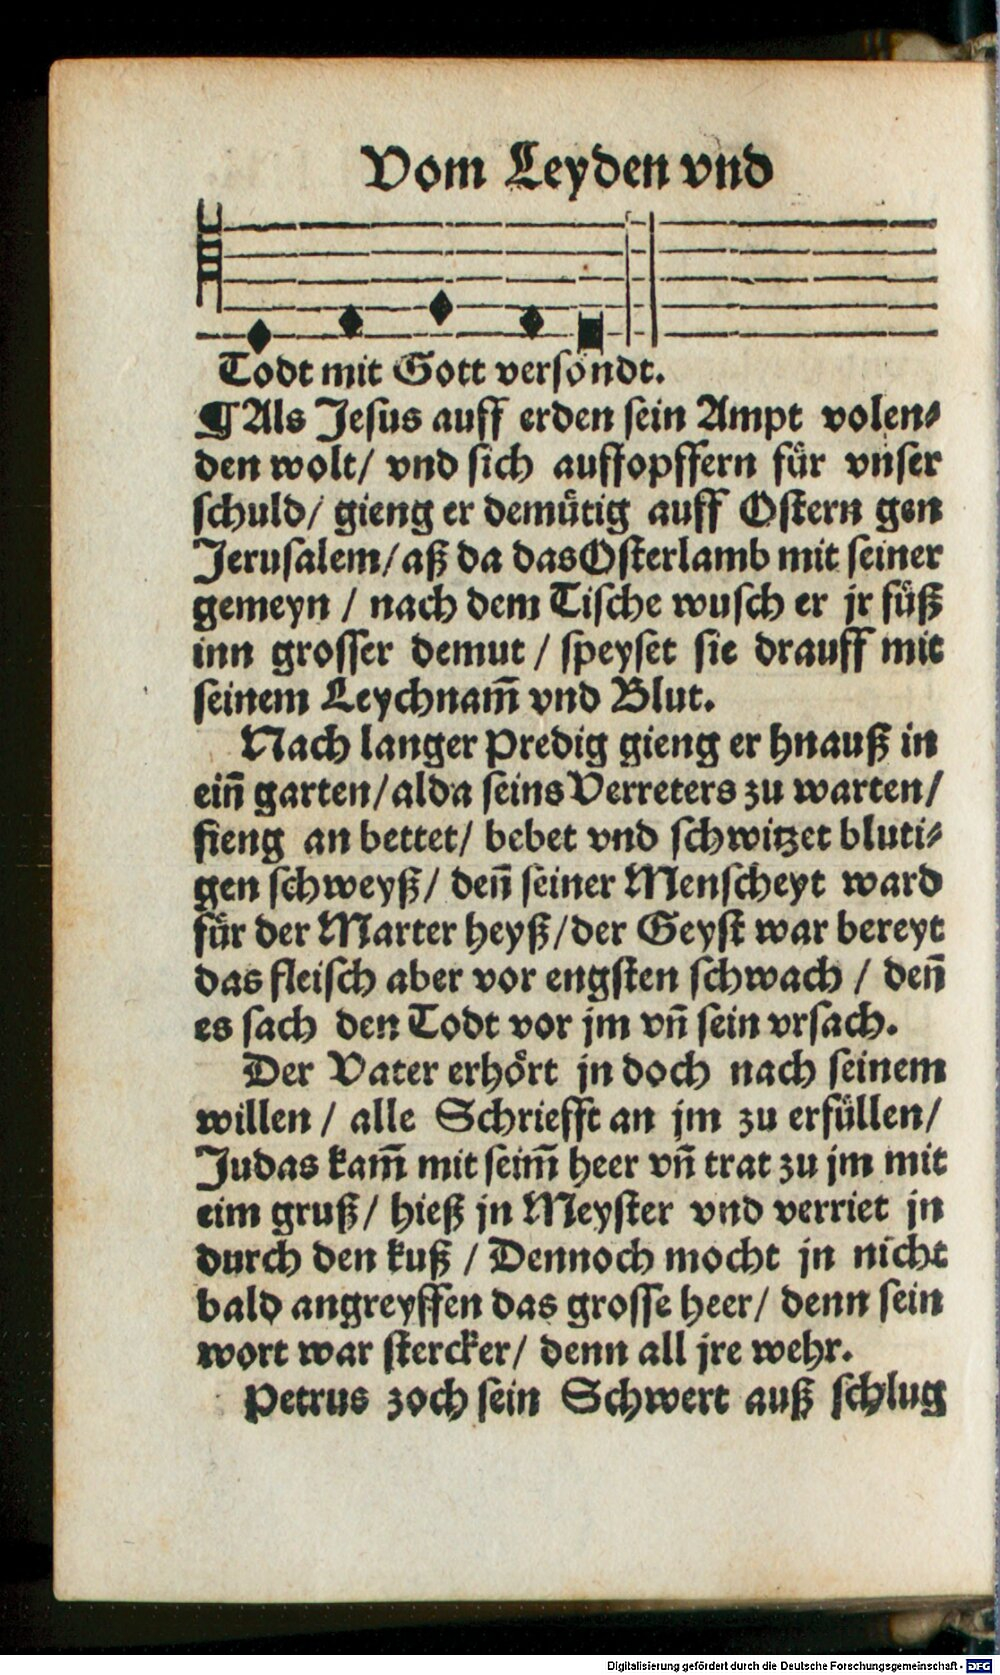 Vom Leyden vnd
Todt mit Gott versöndt.
¶ Als Jesus auff erden sein Ampt volen⸗
den wolt/ vnd sich auffopffern für vnser
schuld/ gieng er demütig auff Ostern gen
Jerusalem/ aß da das Osterlamb mit seiner
gemeyn / nach dem Tische wusch er jr füß
inn grosser demut / speyset sie drauff mit
seinem Leychnam̄ vnd Blut.
Nach langer Predig gieng er hnauß in
ein̄ garten/ alda seins Verreters zu warten/
fieng an bettet/ bebet vnd schwitzet bluti⸗
gen schweyß/ den̄ seiner Menscheyt ward
für der Marter heyß/ der Geyst war bereyt
das fleisch aber vor engsten schwach / den̄
es sach den Todt vor jm vn̄ sein vrsach.
Der Vater erhört jn doch nach seinem
willen / alle Schriefft an jm zu erfüllen/
Judas kam̄ mit seim̄ heer vn̄ trat zu jm mit
eim gruß/ hieß jn Meyster vnd verriet jn
durch den kuß / Dennoch mocht jn nicht
bald angreyffen das grosse heer/ denn sein
wort war stercker/ denn all jre wehr.
Petrus zoch sein Schwert auß schlug
Digitalisierung gefördert durch die Deutsche Forschungsgemeinschaft - DFG